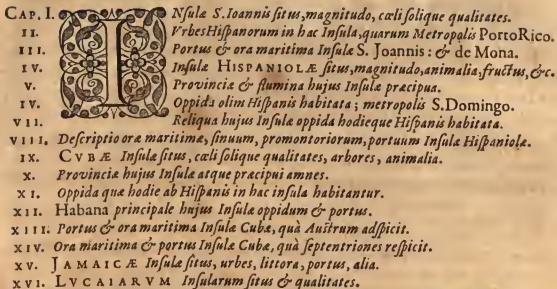 CAP. I. INſulæ S. Ioannis ſitus, magnitudo, cæli ſolique qualitates.
II. Vrbes Hiſpanorum in hac Inſula, quarum Metropolis PortoRico.
III. Portus & ora maritima Inſulæ S. Joannis: & de Mona.
IV. Inſulæ HISPANIOLÆ ſitus, magnitudo, animalia, fructus, &c.
V. Provinciæ & flumina hujus Inſulæ præcipua.
IV. Oppida olim Hiſpanis habitata; metropolis S. Domingo.
VII. Reliqua hujus Inſulæ oppida hodieque Hiſpanis habitata.
VIII. Deſcriptio oræ maritimæ, ſinuum, promontoriorum, portuum Inſulæ Hiſpaniolæ.
IX. CVBÆ Inſulæ ſitus, cæli ſolique qualitates, arbores, animalia.
X. Provinciæ hujus Inſulæ atque præcipui amnes.
XI. Oppida quæ hodie ab Hiſpanis in hac inſula habitantur.
XII. Habana principale hujus Inſulæ oppidum & portus.
XIII. Portus & ora maritima Inſulæ Cubæ, quà Auſtrum adſpicit.
XIV. Ora maritima & portus Inſulæ Cubæ, quà ſeptentriones reſpicit.
XV. JAMAICÆ Inſulæ ſitus, urbes, littora, portus, alia.
XVI. LVCAIARVM Inſularum ſitus & qualitates.